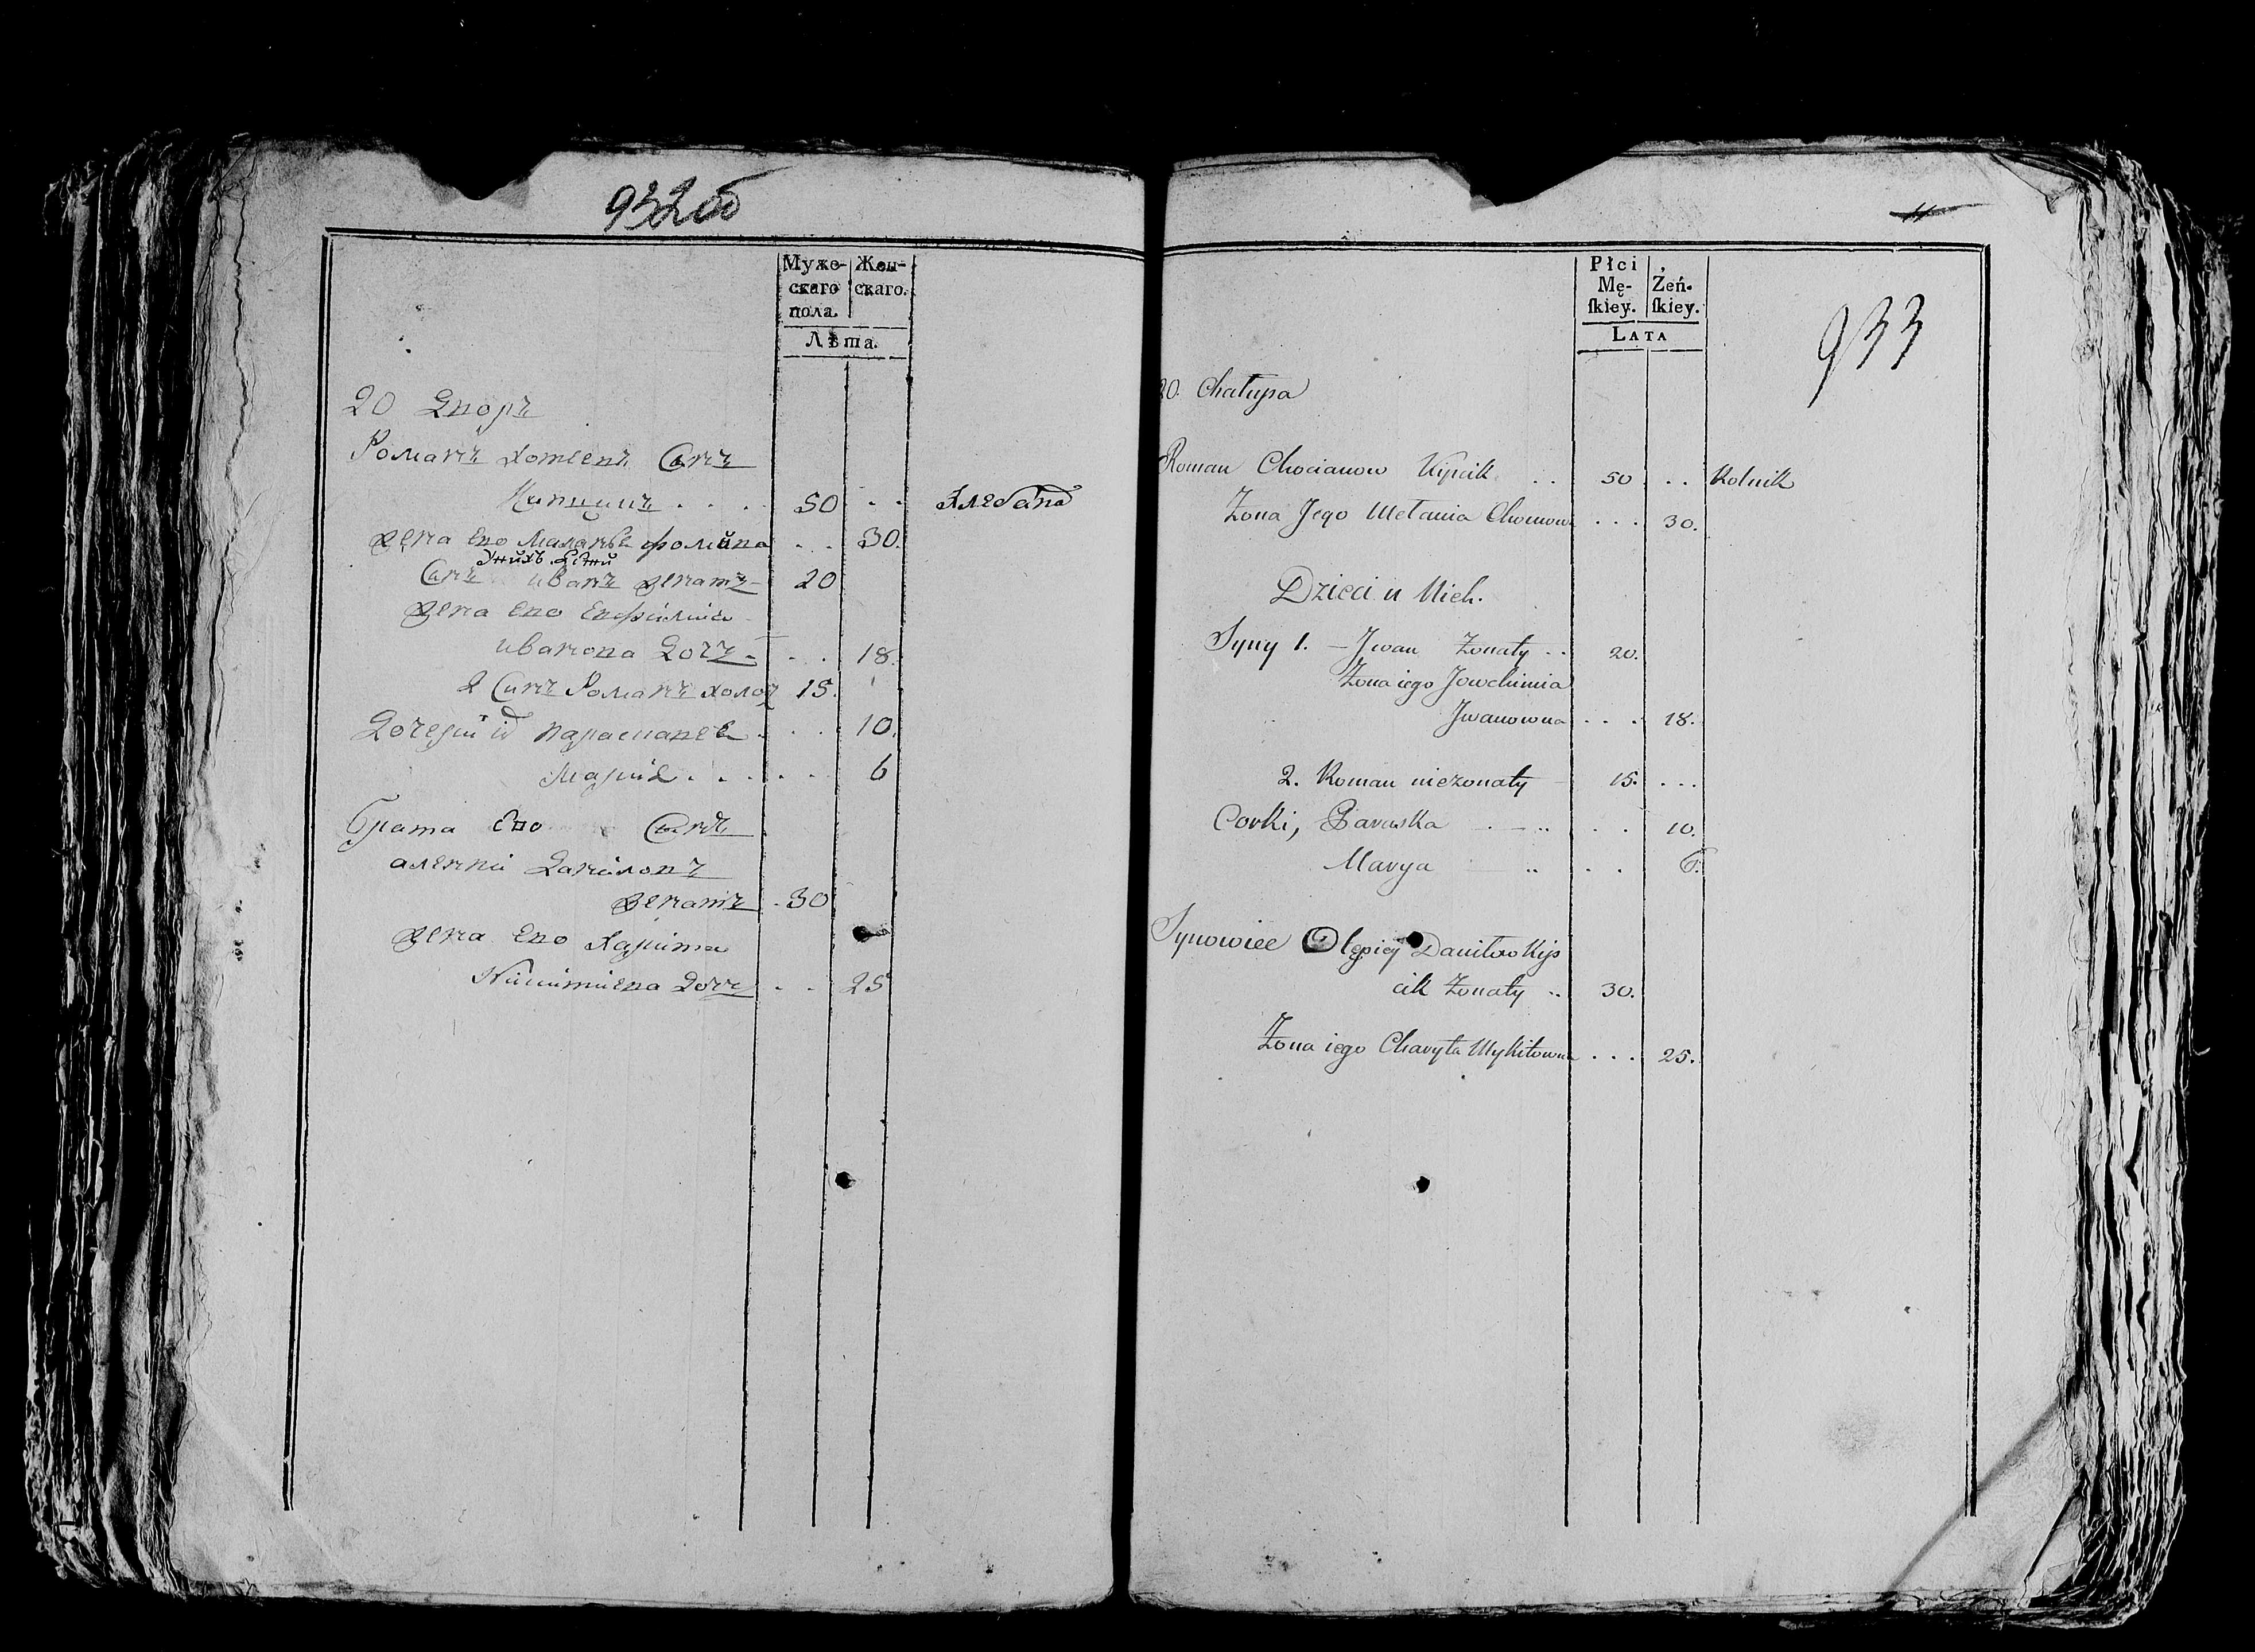 932об
Муже-
скаго
пола.
Жен-
скаго.
Лѣта.
20 Дворъ
Романъ Сынъ
50 . .
жена его Маланья Фомина . . 30.
У нихъ Дѣти
Сынъ Иванъ женатъ 20
жена его
Иванова Дочъ . . . 18.
2 Сынъ Романъ холос 15.
Дочери . . . 10.
Мария . . . . . . 6
Брата его Сынъ
Даниловъ
женатъ . 30
жена его Харита
Дочъ . . 25
933
Płci
Mę-
ſkiey.
Żeń-
ſkiey.
LATA
20. Chałupa
Roman Chocianow Kipcik . . 50 . . Rolnik
Żona Jego Mełania Chomowa . . . 30.
Dzieci u Nich.
Syny 1. – Jwan Żonaty . . 20.
Żona iego Jowchimia
Jwanowna . . . 18.
2. Roman nieżonaty – 15. . . .
Corki, Paraska . – .. . . 10.
Marya – .. . . 6.
Synowiec Daniłow Kip
cik Żonaty .. 30.
Żona iego Charyta Mykitowna . . . 25.